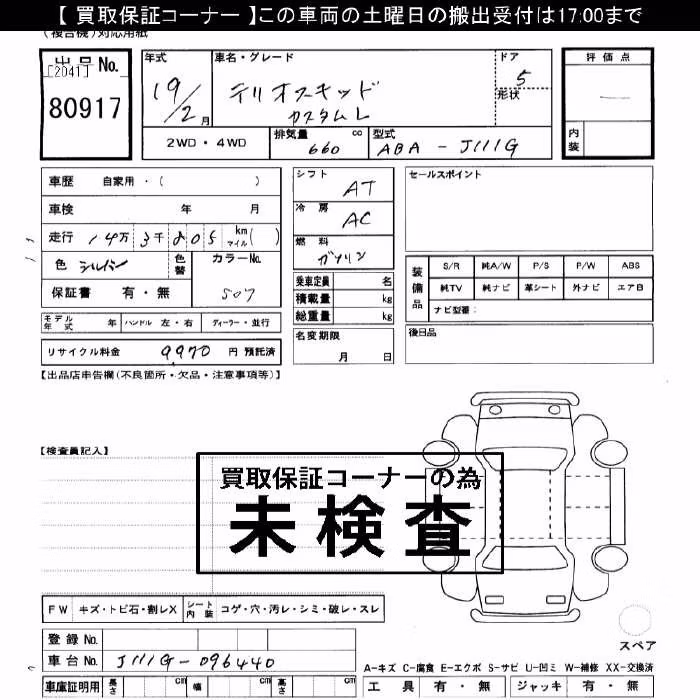 【 買取保証コーナー 】この車両の土曜日の搬出受付は17:00まで
(複合機)対応用紙
出品 No.
[2041]
80917
年式
19/2月
車名・グレード
テリオスキッド
カスタムL
ドア
5
形状
評価点
内装
2WD・4WD
排気量 cc
660
型式
ABA - J111G
車歴 自家用・( )
車検 年 月
走行 14万 3千 805 km マイル ( )
色 シルバー 色替 カラーNo. S07
保証書 有・無
モデル年式 年 ハンドル 左・右 ディーラー・並行
リサイクル料金 9970 円 預託済
シフト AT
冷房 AC
燃料 ガソリン
乗車定員 名
積載量 kg
総重量 kg
名変期限
月 日
セールスポイント
装備品
S/R 純A/W P/S P/W ABS
純TV 純ナビ 革シート 外ナビ エアB
ナビ型番:
後日品
【出品店申告欄(不良箇所・欠品・注意事項等)】
【検査員記入】
買取保証コーナーの為
未検査
FW キズ・トビ石・割レX シート内装 コゲ・穴・汚レ・シミ・破レ・スレ
スペア
登録 No.
車台 No. J111G-096440
車庫証明用 長さ cm 幅 cm 高さ cm
A-キズ C-腐食 E-エクボ S-サビ U-凹ミ W-補修 XX-交換済
工具 有・無 ジャッキ 有・無